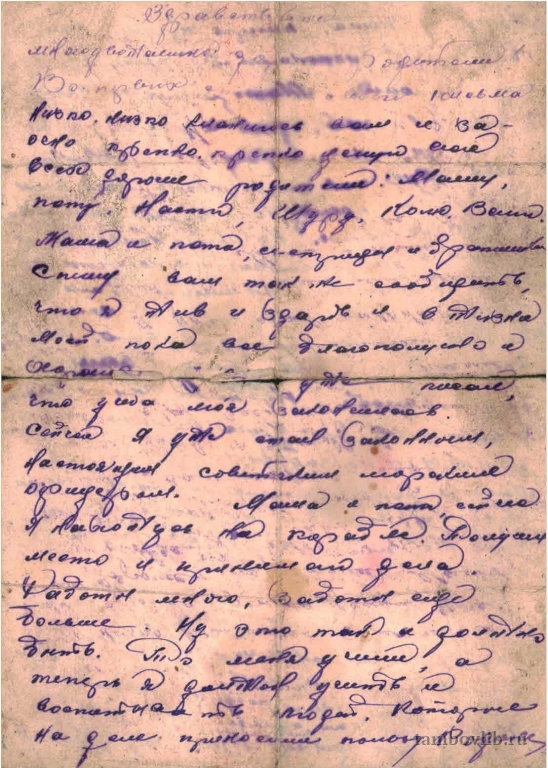 Здравствуйте
многоуважаемые родители!
В письма
низко, низко кланяюсь вам и за-
очно крепко, крепко целую
всех дорогие родители: Маму,
папу Настю, Шуру, Колю, Ваню.
Мама и папа, сестрицы и братишки
Спешу вам также сообщить,
что я жив и здоров и в жизни
моей пока все благополучно и
хорошо. уже писал,
что учеба моя закончилась
сейчас я уже стал законным,
настоящим советским морским
офицером. Мама и папа, сейчас
я нахожусь на корабле. Получил
место и принимаю дела.
Работы много, заботы еще
больше. Ну это так и должно
быть. То меня учили, а
теперь я должен учить и
воспитывать людей, которые
на деле приносили пользу
tambovlib.ru